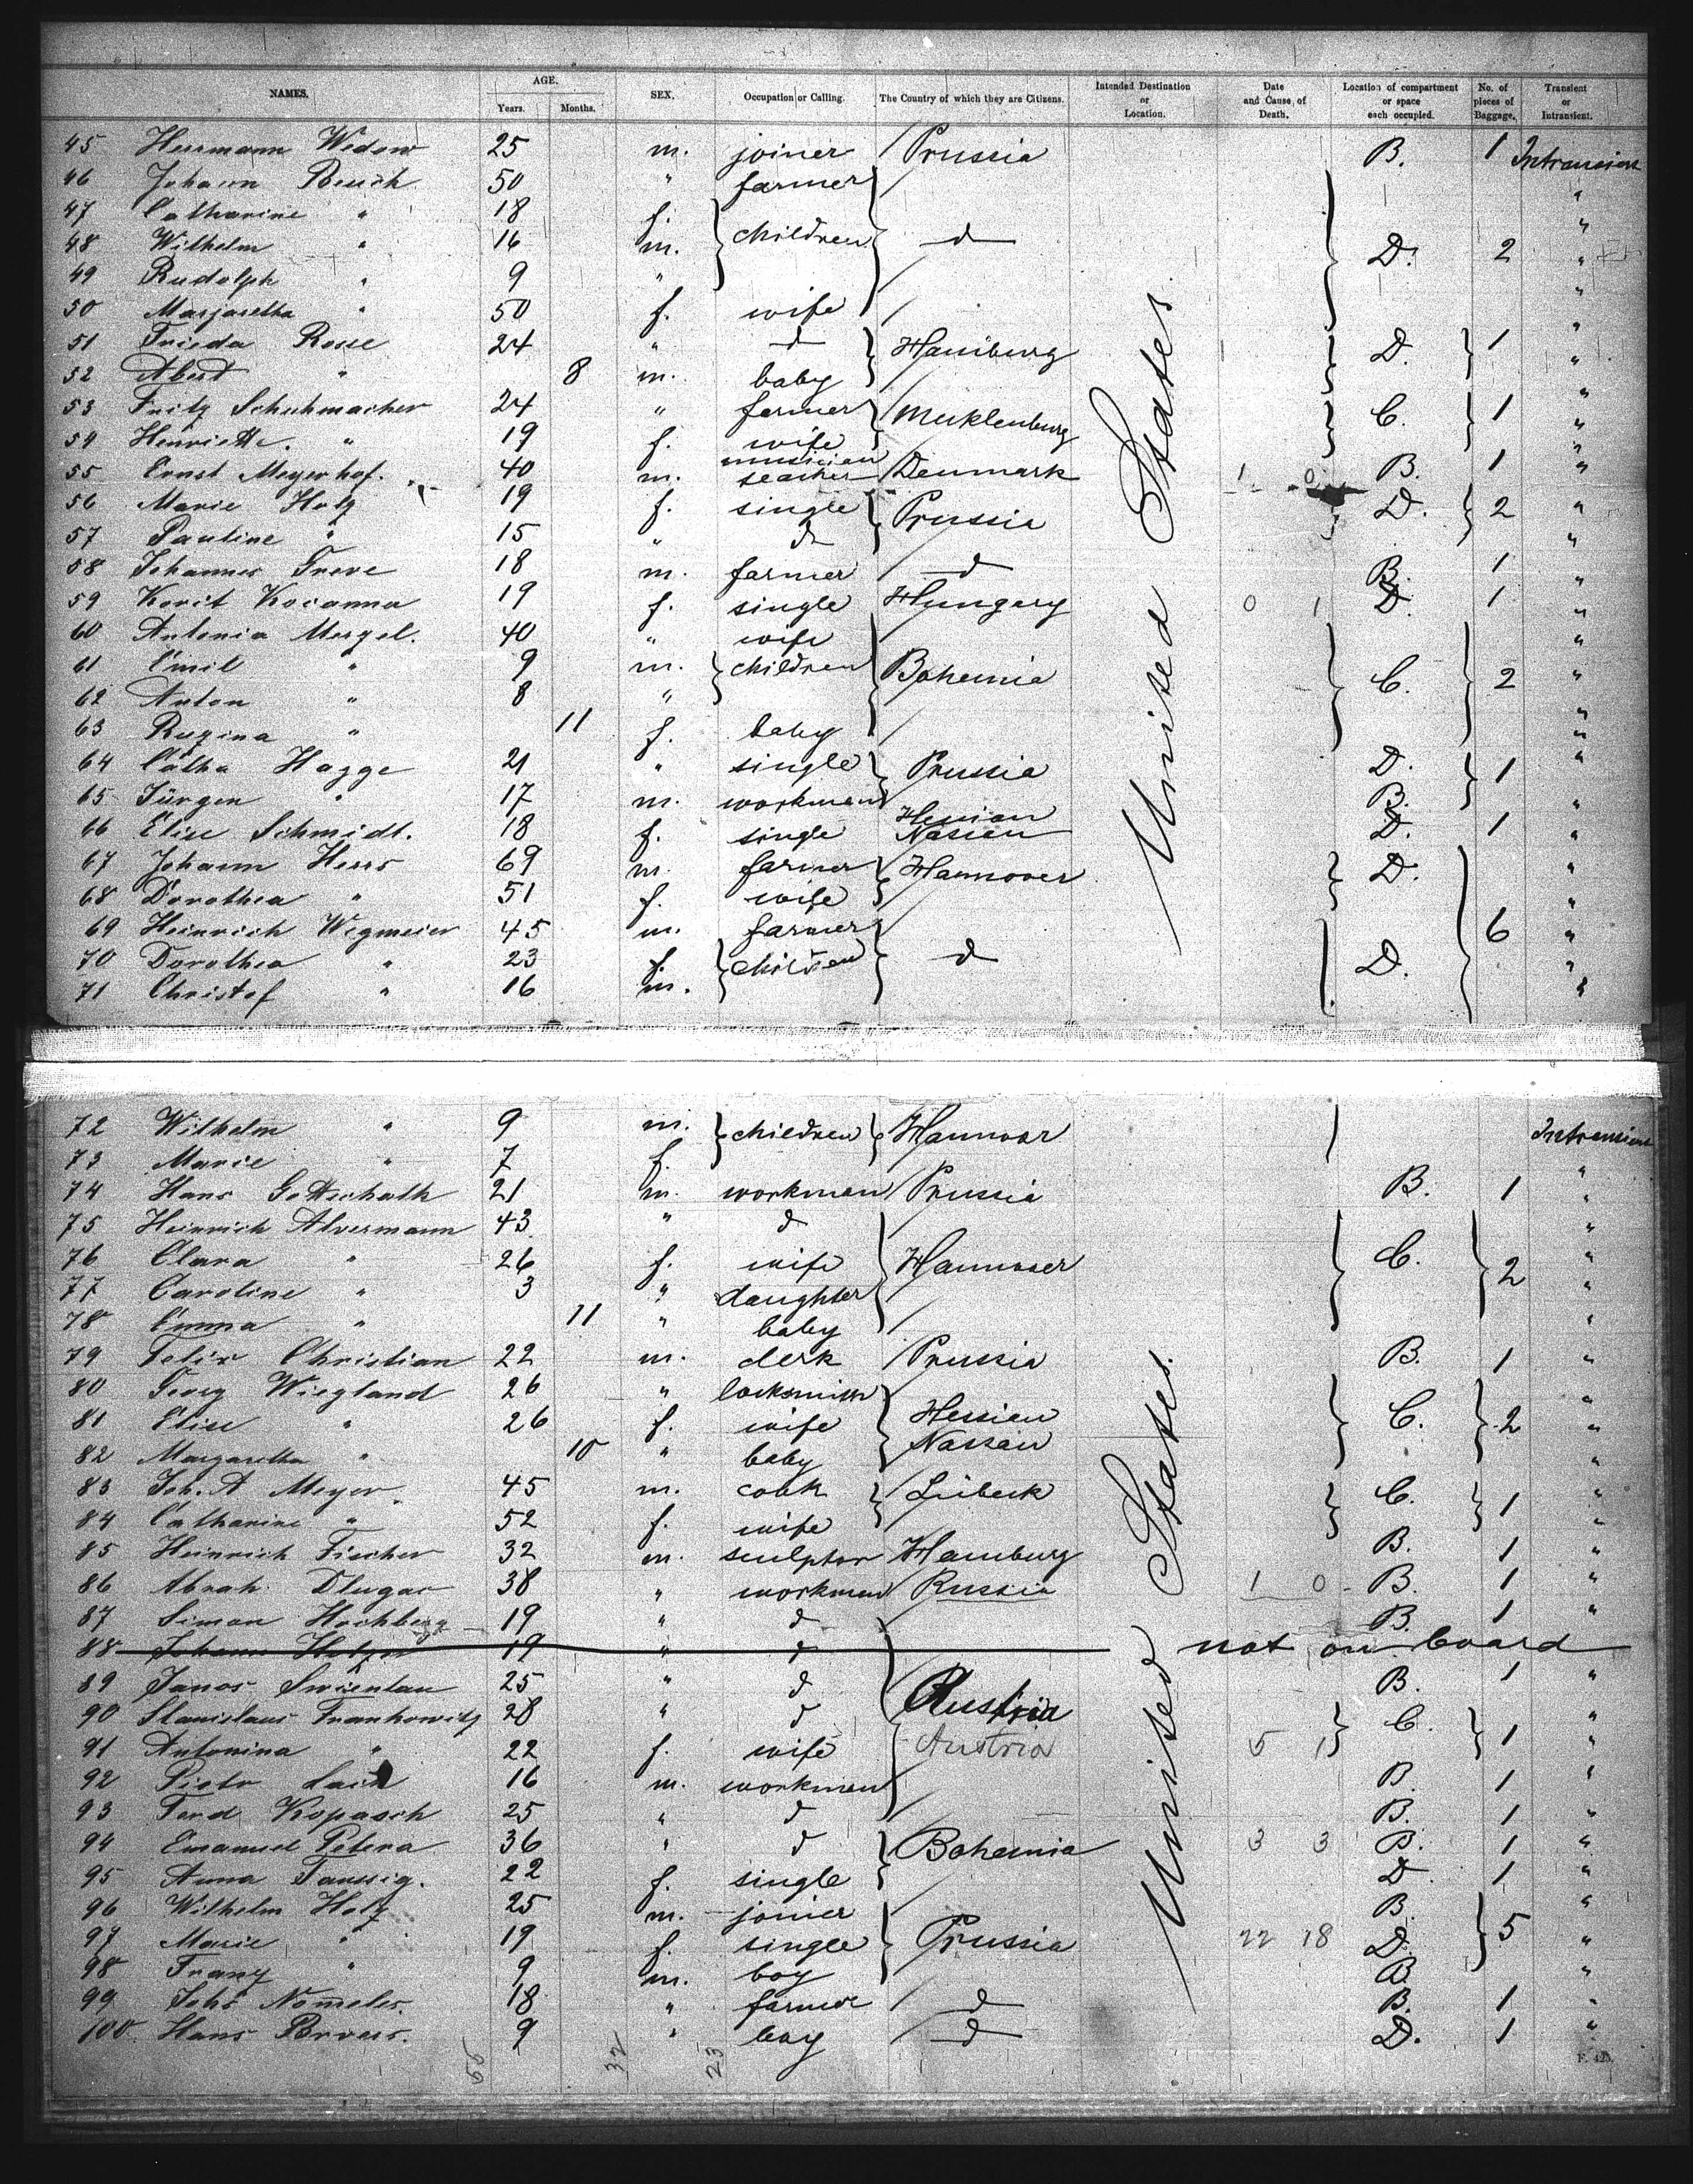 NAMES. AGE. Years. Months. SEX. Occupation or Calling. The Country of which they are Citizens. Intended Destination or Location. Date and Cause of Death. Location of compartment or space each occupied. No. of pieces of Baggage. Transient or Intransient.
45 Herrmann Wedow 25 m. joiner Prussia B. 1 Intransient
46 Johann Reuch 50 " farmer "
47 Catharine " 18 f. "
48 Wilhelm " 16 m. children d D. 2 "
49 Rudolph " 9 " "
50 Margaretha " 50 f. wife "
51 Frieda Rosse 24 " d Hamburg D. 1 "
52 Abert " 8 m. baby "
53 Fritz Schuhmacher 24 " farmer Mecklenburg C. 1 "
54 Henriette " 19 f. wife "
55 Ernst Meyerhof. 40 m. musician teacher Denmark 1 0 B. 1 "
56 Marie Holz 19 f. single Prussia D. 2 "
57 Pauline " 15 " d "
58 Johannes Treve 18 m. farmer d B. 1 "
59 19 f. single Hungary 0 1 D. 1 "
60 Antonia Mergel. 40 " wife "
61 Emil " 9 m. children Bohemia C. 2 "
62 Anton " 8 " "
63 Regina " 11 f. baby "
64 Catha Hagge 21 " single Prussia D. 1 "
65 Jürgen " 17 m. workman B. "
66 Elise Schmidt. 18 f. single Hessian Nassau D. 1 "
67 Johann Herrs 69 m. farmer Hannover D. "
68 Dorothea " 51 f. wife "
69 Heinrich Wegmeier 45 m. farmer 6 "
70 Dorothea " 23 f. children d D. "
71 Christof " 16 m. "
United States.
72 Wilhelm " 9 m. children Hannover Intransient
73 Marie " 7 f. "
74 Hans Gottschalk 21 m. workman Prussia B. 1 "
75 Heinrich Alvermann 43 " d "
76 Clara " 26 f. wife Hannover C. 2 "
77 Caroline " 3 " daughter "
78 Emma " 11 " baby "
79 Felix Christian 22 m. clerk Prussia B. 1 "
80 Georg Wiegland 26 " locksmith "
81 Elise " 26 f. wife Hessian Nassau C. 2 "
82 Margaretha " 10 " baby "
83 Joh. A Meyer 45 m. cook Lübeck C. 1 "
84 Catharine " 52 f. wife "
85 Heinrich Fischer 32 m. sculptor Hamburg B. 1 "
86 Abrah. Dlugar 38 " workman Russia 1 0 B. 1 "
87 Simon Hochberg 19 " d B. 1 "
88 Johann 19 " d not on board
89 Janos 25 " d Austria B. 1 "
90 Stanislaus Frankowitz 28 " d Austria C. 1 "
91 Antonina " 22 f. wife 5 1 "
92 Piotr 16 m. workman B. 1 "
93 Ferd Kopasch 25 " d B. 1 "
94 Emanuel Petera 36 " d Bohemia 3 3 B. 1 "
95 Anna Taussig. 22 f. single D 1 "
96 Wilhelm Holz 25 m. joiner B. 5 "
97 Marie " 19 f. single Prussia 22 18 D. "
98 Franz " 9 m. boy B. "
99 Johs 18 " farmer d B. 1 "
100 Hans 9 " boy d D. 1 "
United States.
55 32 23